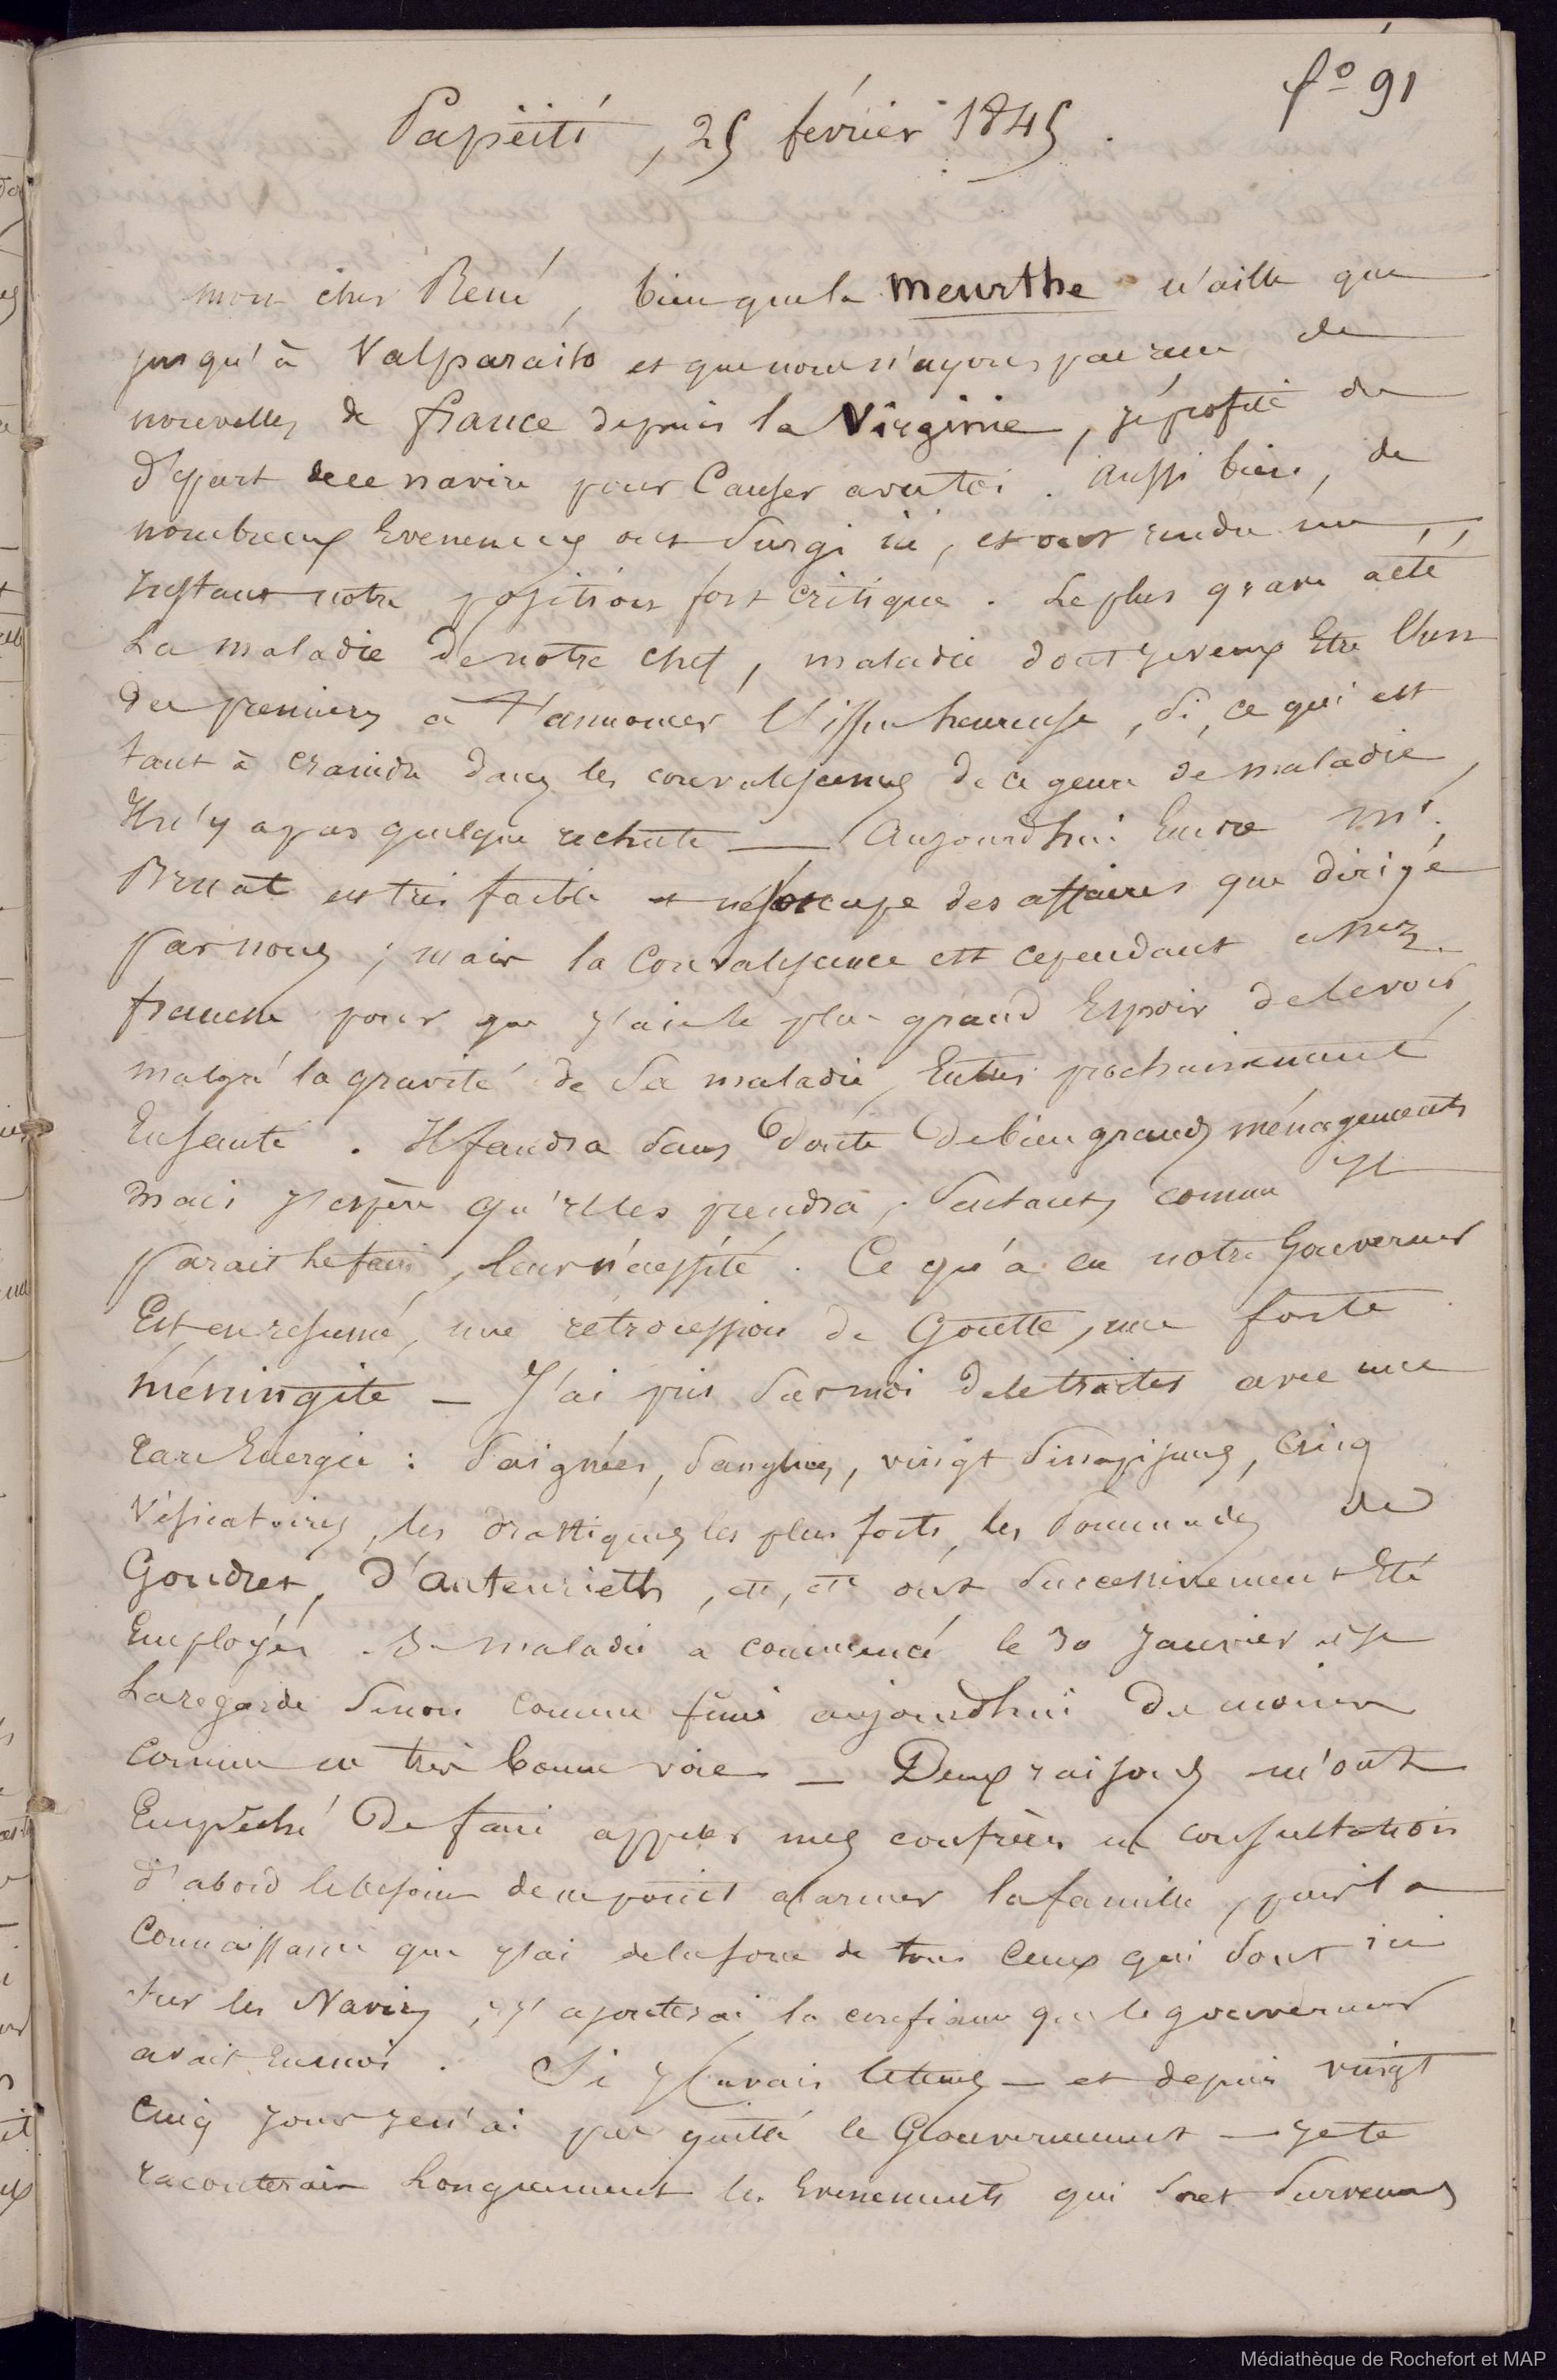 fo 91
Papéiti, 25 février 1845.
mon cher René, bien que la Meurthe n'aille que
jusqu'à Valparaiso et que nous n'ayons pas reçu de
nouvelles de france depuis la Virginie, je profite du
départ de ce navire pour Causer avec toi. Aussi bien, de
nombreux Evenemens ont surgi ici, et ont rendu un
Instant notre position fort critique. Le plus grave a été
La maladie de notre chef, maladie dont je veux Etre l'un
des premiers à t'annoncer l'issue heureuse, si, ce qui est
tant à craindre dans les convalescences de ce genre de maladie,
Il n'y a pas quelque rechute — Aujourd'hui Encore Mr.
Bruat est très faible et ne s'occupe des affaires que dirigé
par nous; mais la Convalescence est cependant assez
franche pour que j'aie le plus grand Espoir de le voir,
malgré la gravité de sa maladie, Entrer prochainement
En santé. Il faudra sans Doute De bien grands ménagements
mais j'espère qu'il les prendra, sentant, comme Il
parait le faire, leur nécessité. Ce qu'a eu notre Gouverneur
Est en resumé, une rétrocession de Goutte, une forte
méningite — J'ai pris sur moi de le traiter avec une
rare Energie : saignées, sangsues, vingt sinapismes, Cinq
Vésicatoires, les drastiques les plus forts, les pommades de
Gondret, d'autenrieth, etc, etc ont successivement Eté
Employés. Sa maladie a commencé le 30 Janvier et je
La regarde sinon comme finie aujourd'hui du moins
comme en très bonne voie — Deux raisons m'ont
Empêché De faire appeler mes confrères en consultation
d'abord le besoin de ne point alarmer la famille, puis la
Connaissance que j'ai de la force de tous Ceux qui sont ici
sur les Navires, j'y ajouterai la confiance que le gouverneur
avait En moi. Si j'avais le tems — et depuis vingt
Cinq jours je n'ai pas quitté le Gouvernement — je te
raconterais Longuement les Evenements qui sont survenus
Médiathèque de Rochefort et MAP